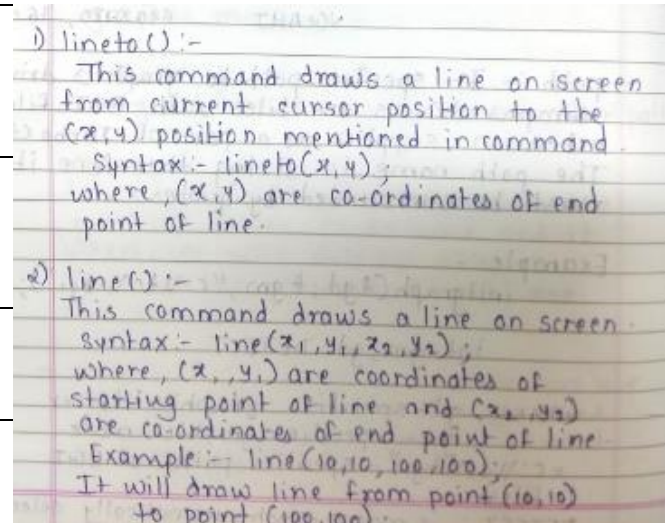 1) lineto() :-
This command draws a line on screen
from current cursor position to the
(x,y) position mentioned in command.
Syntax :- lineto(x,y) ;
where, (x,y) are co-ordinates of end
point of line.
2) line() :-
This command draws a line on screen.
Syntax :- line(x1, y1, x2, y2) ;
where, (x1, y1) are coordinates of
starting point of line and (x2, y2)
are co-ordinates of end point of line
Example :- line(10,10,100,100);
It will draw line from point (10,10)
to point (100,100).